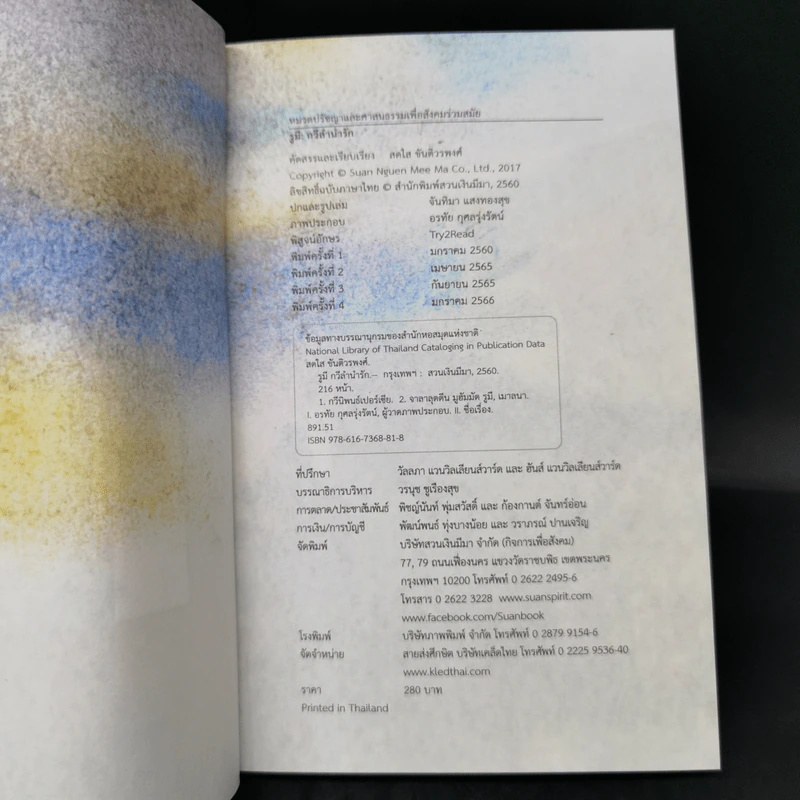 หมวดปรัชญาและศาสนธรรมเพื่อสังคมร่วมสมัย
รูมี: กวีลำนำรัก
คัดสรรและเรียบเรียง สดใส ขันติวรพงศ์
Copyright © Suan Nguen Mee Ma Co., Ltd., 2017
ลิขสิทธิ์ฉบับภาษาไทย © สำนักพิมพ์สวนเงินมีมา, 2560
ปกและรูปเล่ม จันทิมา แสงทองสุข
ภาพประกอบ อรทัย กุศลรุ่งรัตน์
พิสูจน์อักษร Try2Read
พิมพ์ครั้งที่ 1 มกราคม 2560
พิมพ์ครั้งที่ 2 เมษายน 2565
พิมพ์ครั้งที่ 3 กันยายน 2565
พิมพ์ครั้งที่ 4 มกราคม 2566
ข้อมูลทางบรรณานุกรมของสำนักหอสมุดแห่งชาติ
National Library of Thailand Cataloging in Publication Data
สดใส ขันติวรพงศ์.
รูมี กวีลำนำรัก.-- กรุงเทพฯ : สวนเงินมีมา, 2560.
216 หน้า.
1. กวีนิพนธ์เปอร์เซีย. 2. จาลาลุดดีน มูฮัมมัด รูมี, เมาลนา.
I. อรทัย กุศลรุ่งรัตน์, ผู้วาดภาพประกอบ. II. ชื่อเรื่อง.
891.51
ISBN 978-616-7368-81-8
ที่ปรึกษา วัลลภา แวนวิลเลียนส์วาร์ด และ ฮันส์ แวนวิลเลียนส์วาร์ด
บรรณาธิการบริหาร วรนุช ชูเรืองสุข
การตลาด/ประชาสัมพันธ์ พิชญ์นันท์ พุ่มสวัสดิ์ และ ก้องกานต์ จันทร์อ่อน
การเงิน/การบัญชี พัฒน์พงธ์ ทุ่งบางน้อย และ วราภรณ์ ปานเจริญ
จัดพิมพ์ บริษัทสวนเงินมีมา จำกัด (กิจการเพื่อสังคม)
77, 79 ถนนเฟื่องนคร แขวงวัดราชบพิธ เขตพระนคร
กรุงเทพฯ 10200 โทรศัพท์ 0 2622 2495-6
โทรสาร 0 2622 3228 www.suanspirit.com
www.facebook.com/Suanbook
โรงพิมพ์ บริษัทภาพพิมพ์ จำกัด โทรศัพท์ 0 2879 9154-6
จัดจำหน่าย สายส่งศึกษิต บริษัทเคล็ดไทย โทรศัพท์ 0 2225 9536-40
www.kledthai.com
ราคา 280 บาท
Printed in Thailand